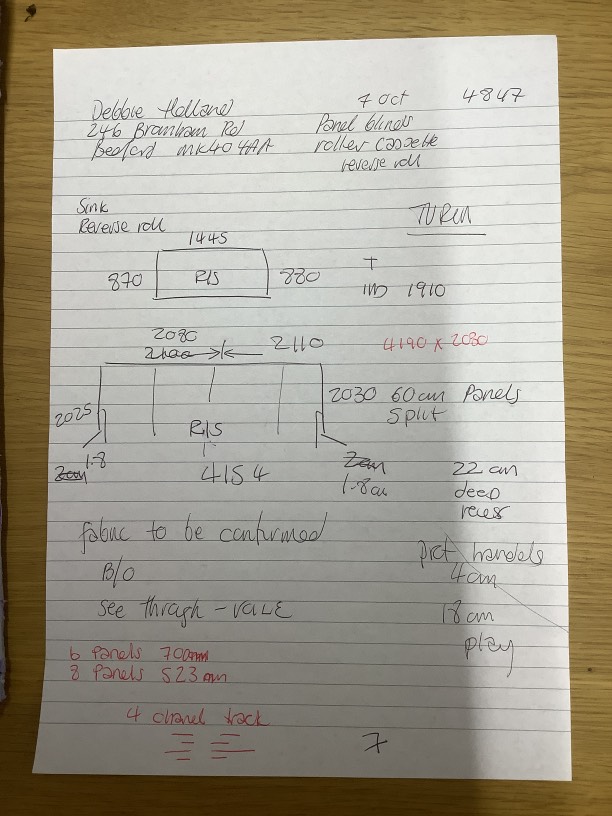 Debbie Holland
7 Oct 4847
246 Bramham Rd
Panel blinds
Bedford MK40 4AA
roller Cassette
reverse roll
Sink
Reverse roll
TURIN
1445
870 R/S 880
T
IND 1910
2080
2100
2110
4190 x 2030
2025
2030 60cm Panels
Split
R/S
1.8
2cm
4154
2cm
1.8cm
22 cm
deep
recess
fabric to be confirmed
B/O
see through - VALE
prct handels
4cm
18cm
play
6 Panels 700mm
8 Panels 523mm
4 chanel track
7